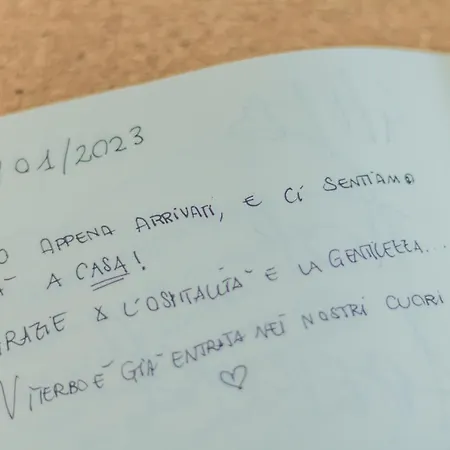 /01/2023
O APPENA ARRIVATI, E CI SENTIAMO
A CASA!
GRAZIE X L'OSPITALITÀ E LA GENTILEZZA...
VITERBO È GIÀ ENTRATA NEI NOSTRI CUORI
♡